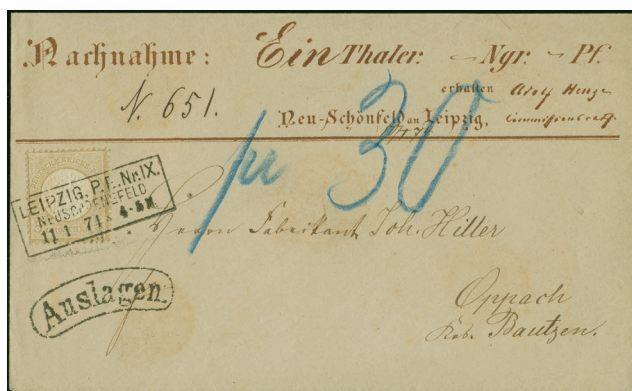 Nachnahme: Ein Thaler. – Ngr. – Pf.
erhalten Adolf Henze
N. 651.
Neu-Schönfeld an Leipzig.
30
LEIPZIG. P.E. Nr. IX.
NEUSCHOENEFELD
11 1 74 4-5 N
Herrn Fabrikant Joh. Hiller
Auslagen.
Oppach
Bautzen.